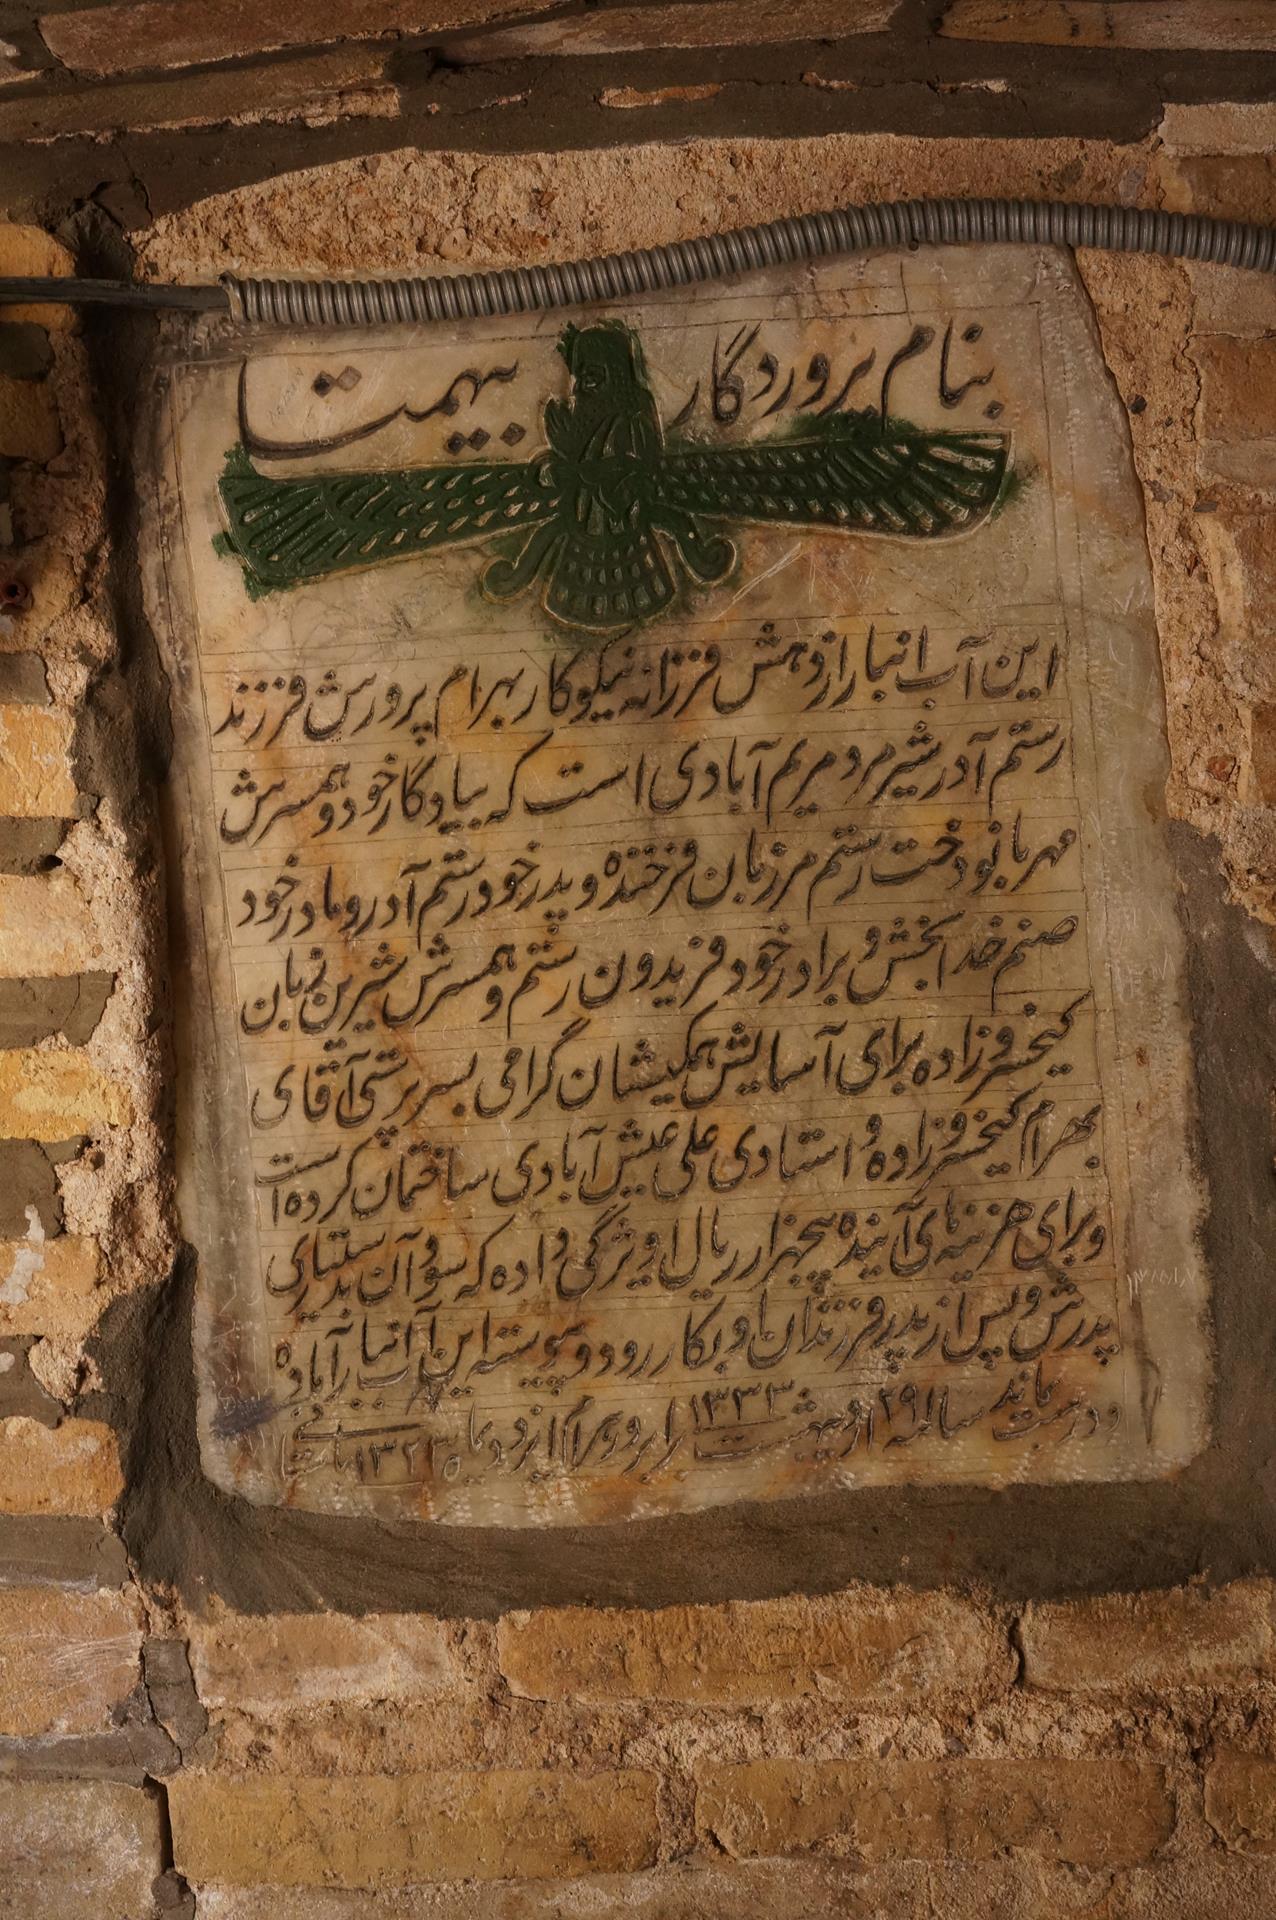 بنام پروردگار بیهمتا
این آب انبار از دهش فرزانه نیکوکار بهرام پرورش فرزند
رستم آدر شیرمرد مریم آبادی است که بیادگار خود و همسرش
مهربانو دخت رستم مرزبان فرخنده و پدر خود رستم آدر و مادر خود
صنم خدابخش و برادر خود فریدون رستم و همسرش شیرین زبان
کیخسرو زاده برای آسایش همکیشان گرامی بسرپرستی آقای
بهرام کیخسرو زاده و استادی علی عیش آبادی ساختمان کرده است
و برای هزینه های آینده پنجهزار ریال ویژگی داده که سود آن بدستیاری
پدرش و پس از پدر فرزندان او بکار رود و پیوسته این آب انبار آباد
و درست بماند سال ۲۹۱ اردیبهشت ۱۳۳۳ برابر و بهرام از دیماه ۱۳۲۳ باستانی